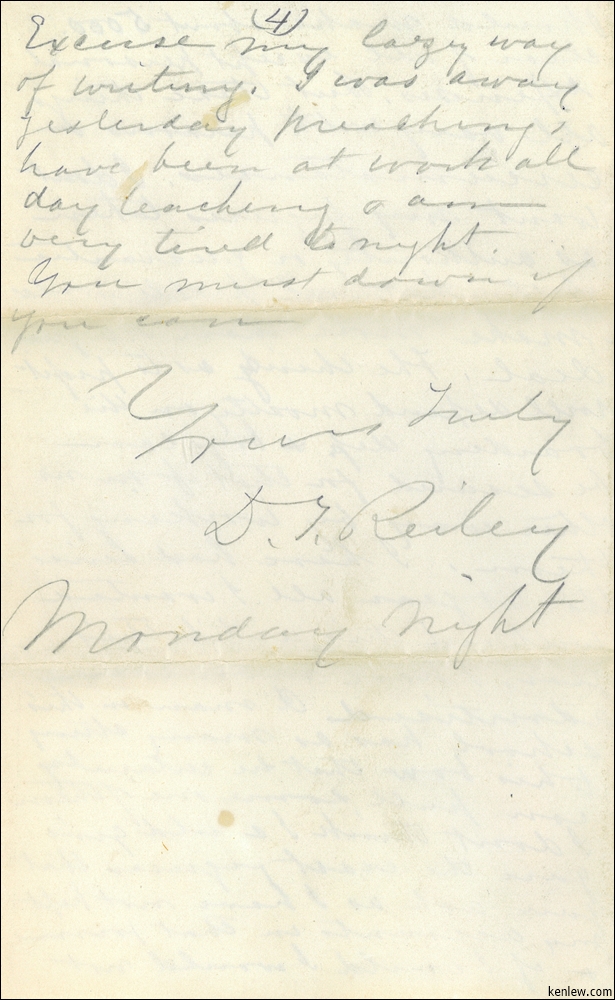 (4)
Excuse my lazy way
of writing. I was away
yesterday preaching,
have been at work all
day teaching & am
very tired to night.
You must down if
you can
Yours Truly
D. T. Reiley
Monday night
kenlew.com